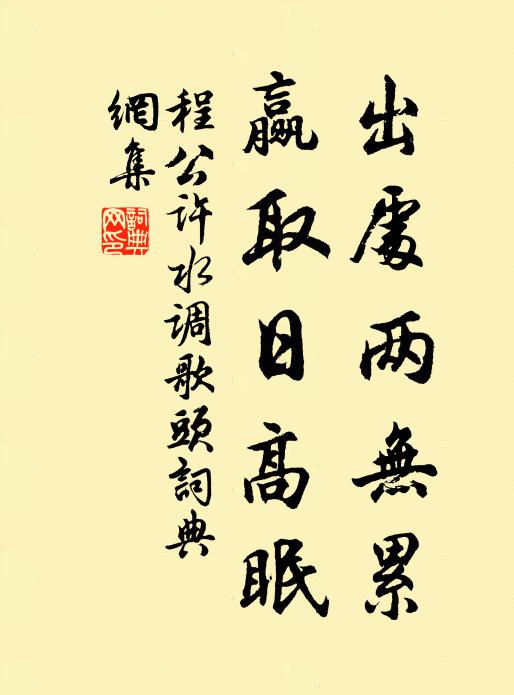 出處两無累
贏取日高眠
程公许水调歌頭詞典
網集
詞典
网印